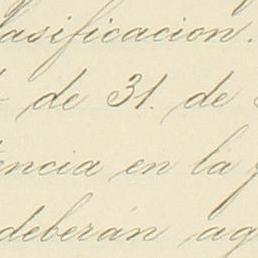 asificacion.
de 31. de
encia en la
deberán ag